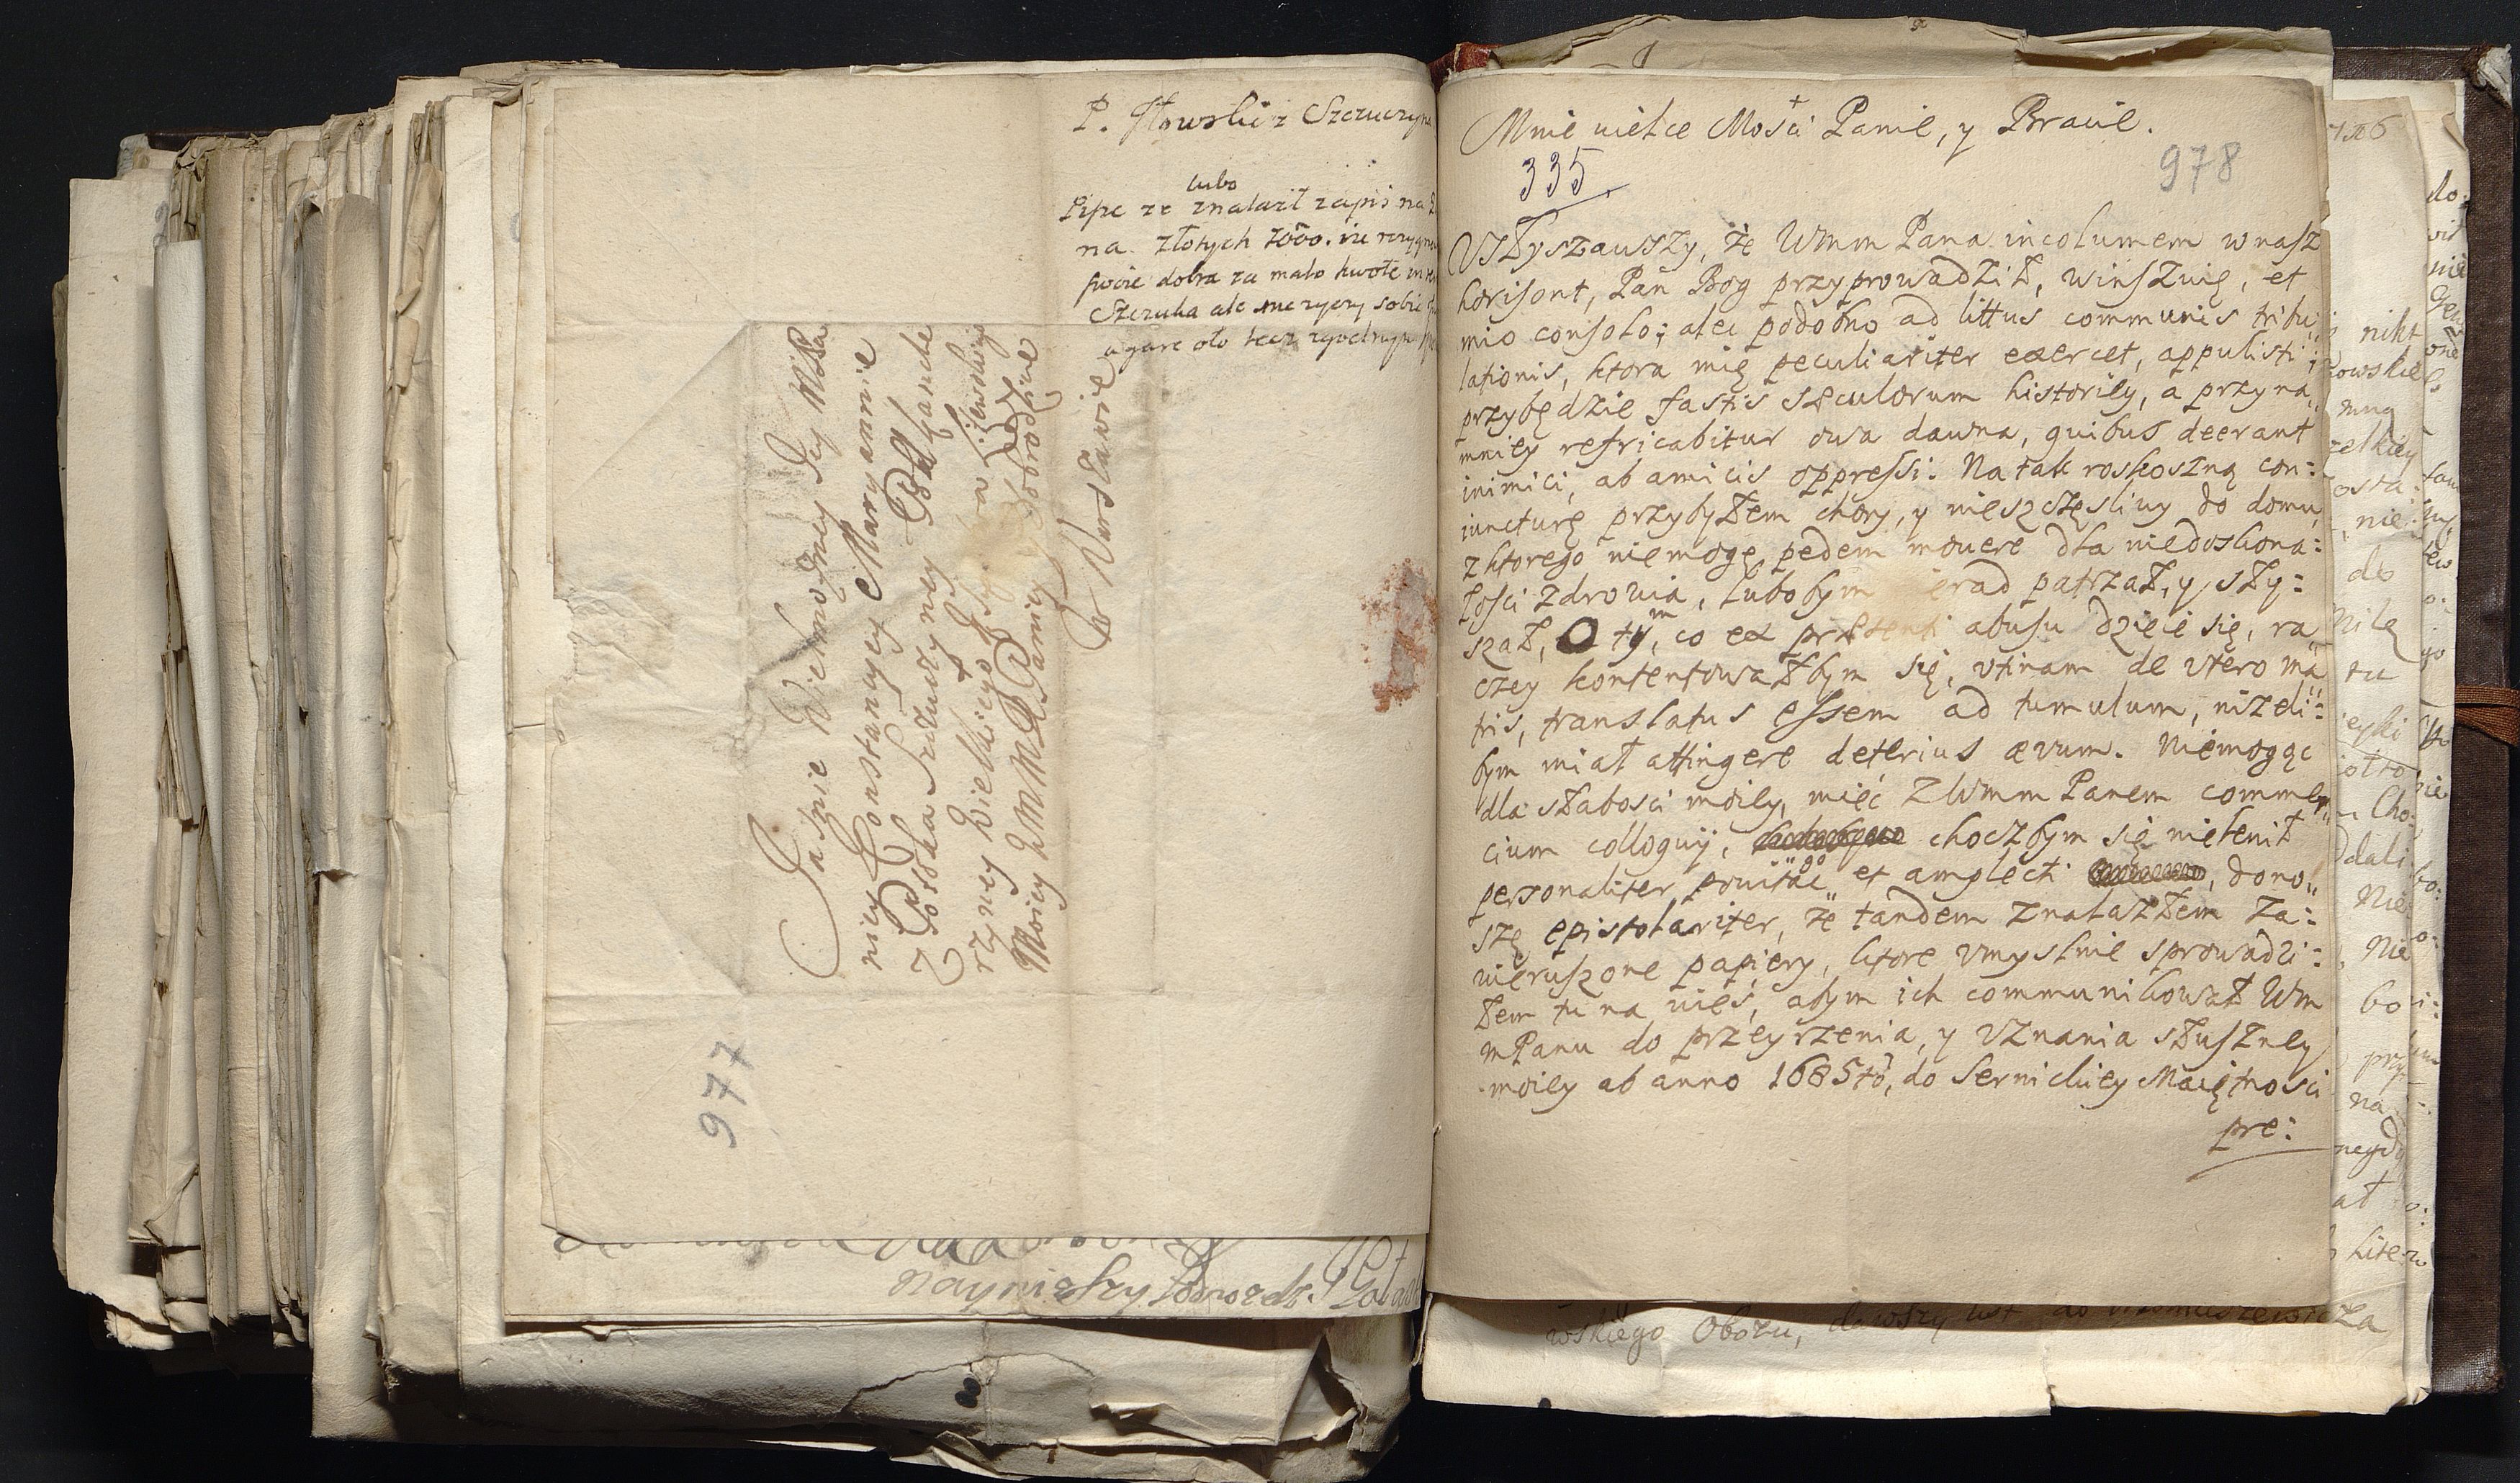 P. Howski z Szczuczyna
lubo
Pisze ze znalazł zapis na
na złotych 7000. ize rezygno
swoie dobra za mało kwotę
Szczuka ale nie zyczy sobie
Jasnie Wielmożney Jey Mśći
niey Konstancyey Maryannie
z Potoka Szczuczyney Pod Kancle
rzyney Wielkiego Xstwa Litewskiego
Moiey WMM Paniey y Dobrodziice
w Warszawie
977
nayniższy Podnożek
Mnie wielce Mości Panie, y Bracie.
335.
978
Vsłyszawszy, że Wmm Pana incolumem w nasz
horisont, Pan Bog przyprowadził, winszuię, et
mio consolo; alec podobno ad littus communis tribu„
lationis, ktora mię peculiariter exercet, appulisti;
przybędzie fastis sæculorum historiey, a przyna„
mniey refricabitur owa dawna, quibus deerant
inimici, ab amicis oppressi. Na tak roskoszną con:
iuncturę przybyłem chory, y nieszczęsliwy do domu,
z ktorego niemogę pedem mouere dla niedoskona:
łosci zdrowia, lubobym rad patrzał, y sły:
szał, O tym, co ex præsenti abusu dzieie się, ra„
czey kontentowałbym się, vtinam de vtero ma„
tris, translatus essem ad tumulum, niżeli:
bym miał attingere deterius ævum. Niemogąc
dla słabosci moiey, mieć z Wmm Panem commer„
cium colloquij, choczbym się nielenił
personaliter powitać go et amplecti, dono„
szę epistolariter, że tandem znalazłem za:
wieruszone papiery, ktore vmyslnie sprowadzi:
łem tu na wieś, abym ich communikował Wm
mPanu do przeyrzenia, y vznania słuszney
moiey ab anno 1685to, do Sernickiey Maiętnosci
pre:
wskiego Obozu, dawszy list do